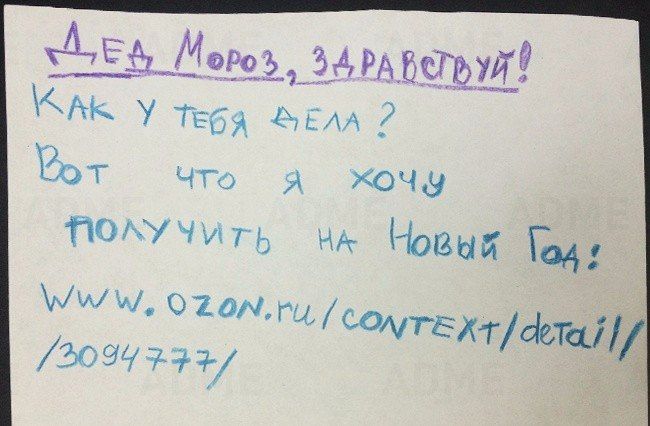 Дед Мороз, здравствуй!
Как у тебя дела?
Вот что я хочу
получить на Новый Год:
www.ozon.ru/context/detail/
/3094777/
ADME ADME ADME
ADME ADME